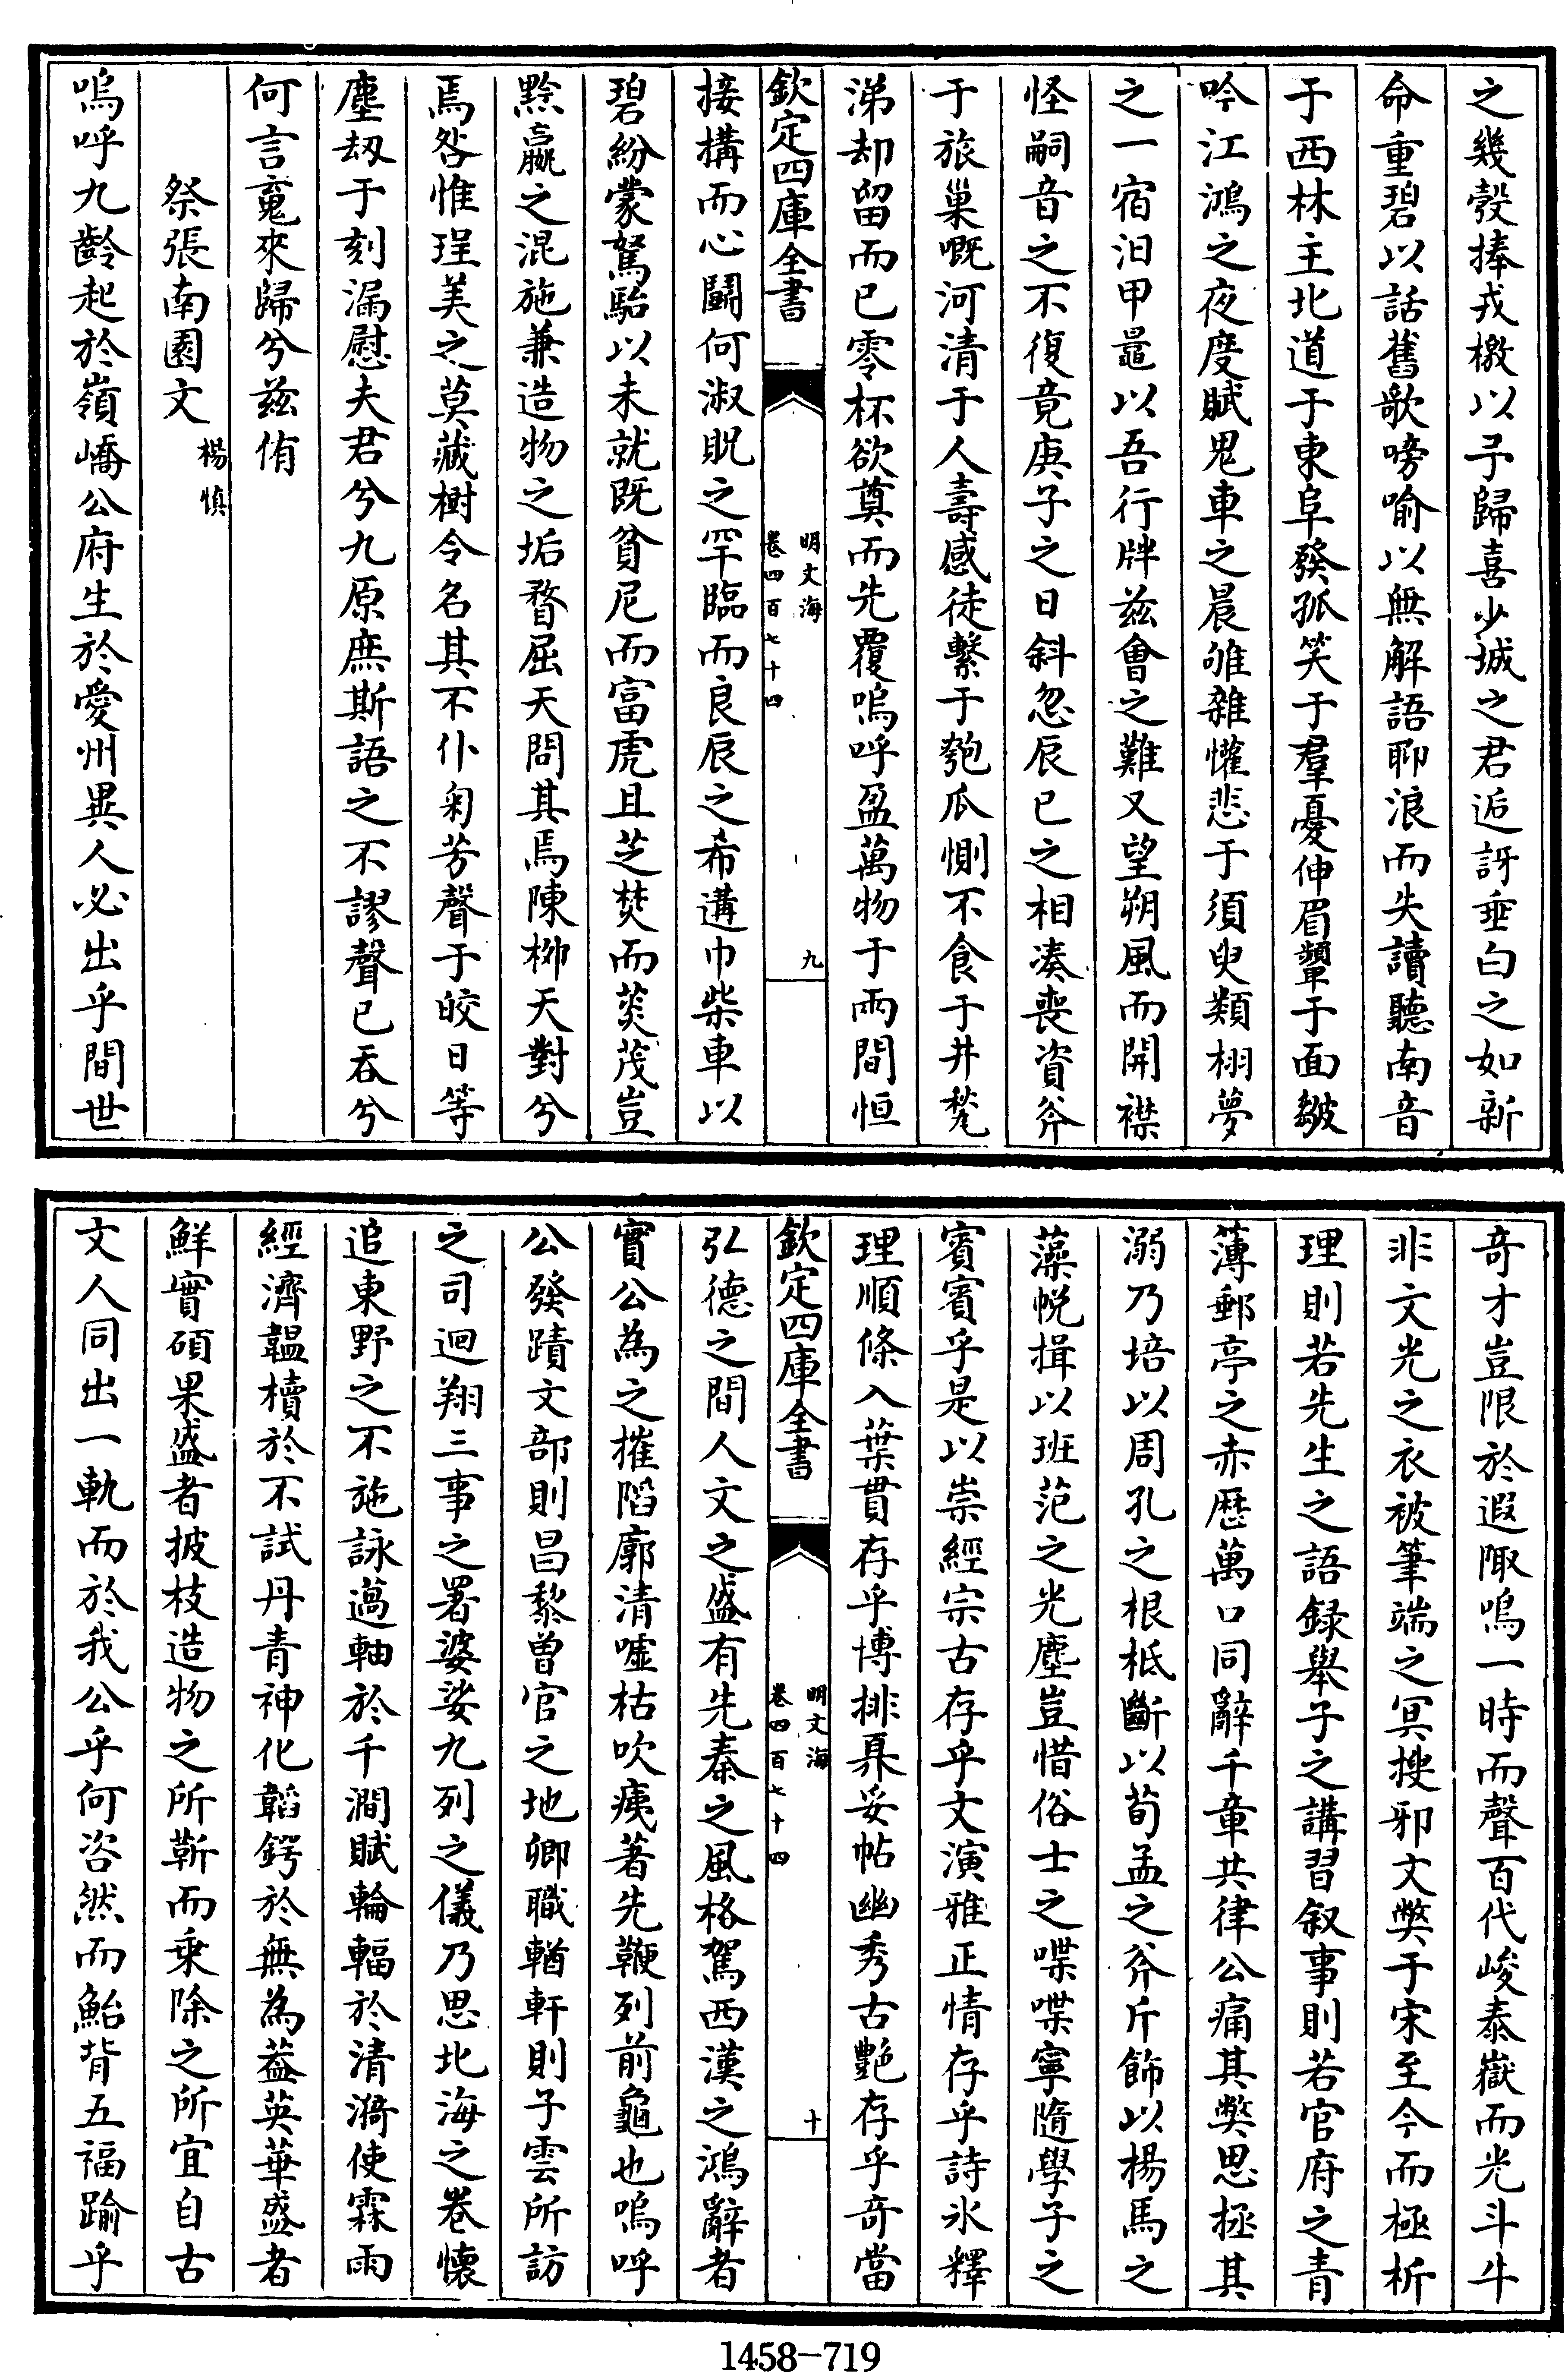 之幾彀捧戎檄以予歸喜少城之君逅訝垂白之如新
命重碧以話舊歌嗙喻以無解語耶浪而失讀聽南音
于西林主北道于東阜發孤笑于羣憂伸眉顰于面皺
吟江鴻之夜度賦鬼車之晨雊雜懽悲于須臾類栩夢
之一宿汨甲鼂以吾行牉兹會之難又望朔風而開襟
怪嗣音之不復竟庚子之日斜忽辰巳之相凑喪資斧
于旅巢嘅河清于人壽感徒繫于匏瓜惻不食于井甃
涕却留而已零杯欲奠而先覆嗚呼盈萬物于兩間恒
欽定四庫全書
明文海
卷四百七十四
九
接構而心鬭何淑貺之罕臨而良辰之希遘巾柴車以
碧紛蒙駑駘以未就既貧尼而富虎且芝焚而菼茂豈
黥嬴之混施兼造物之垢瞀屈天問其焉陳柳天對兮
焉咎惟珵美之莫藏樹令名其不仆匊芳聲于皎日等
塵刼于刻漏慰夫君兮九原庶斯語之不謬聲已吞兮
何言䰟來歸兮兹侑
祭張南園文
楊慎
嗚呼九齡起於嶺嶠公府生於愛州異人必出乎間世
奇才豈限於遐陬鳴一時而聲百代峻泰嶽而光斗牛
非文光之衣被筆端之冥搜邪文弊于宋至今而極析
理則若先生之語録舉子之講習叙事則若官府之青
薄郵亭之赤歴萬口同辭千章共律公痛其弊思拯其
溺乃培以周孔之根柢斷以荀孟之斧斤飾以楊馬之
藻帨揖以班范之光塵豈惜俗士之喋喋寧隨學子之
賓賓乎是以崇經宗古存乎文演雅正情存乎詩氷釋
理順條入葉貫存乎博排奡妥帖幽秀古艶存乎奇當
欽定四庫全書
明文海
卷四百七十四
十
弘德之間人文之盛有先秦之風格駕西漢之鴻辭者
實公為之摧䧟廓清嘘枯吹痍著先鞭列前龜也嗚呼
公發蹟文部則昌黎曽官之地卿職輶軒則子雲所訪
之司迴翔三事之署婆娑九列之儀乃思北海之卷懷
追東野之不施詠薖軸於千澗賦輪輻於清漪使霖雨
經濟韞櫝於不試丹青神化韜鍔於無為葢英華盛者
鮮實碩果盛者披枝造物之所靳而乗除之所宜自古
文人同出一軌而於我公乎何咨然而鮐背五福踰乎
1458—719